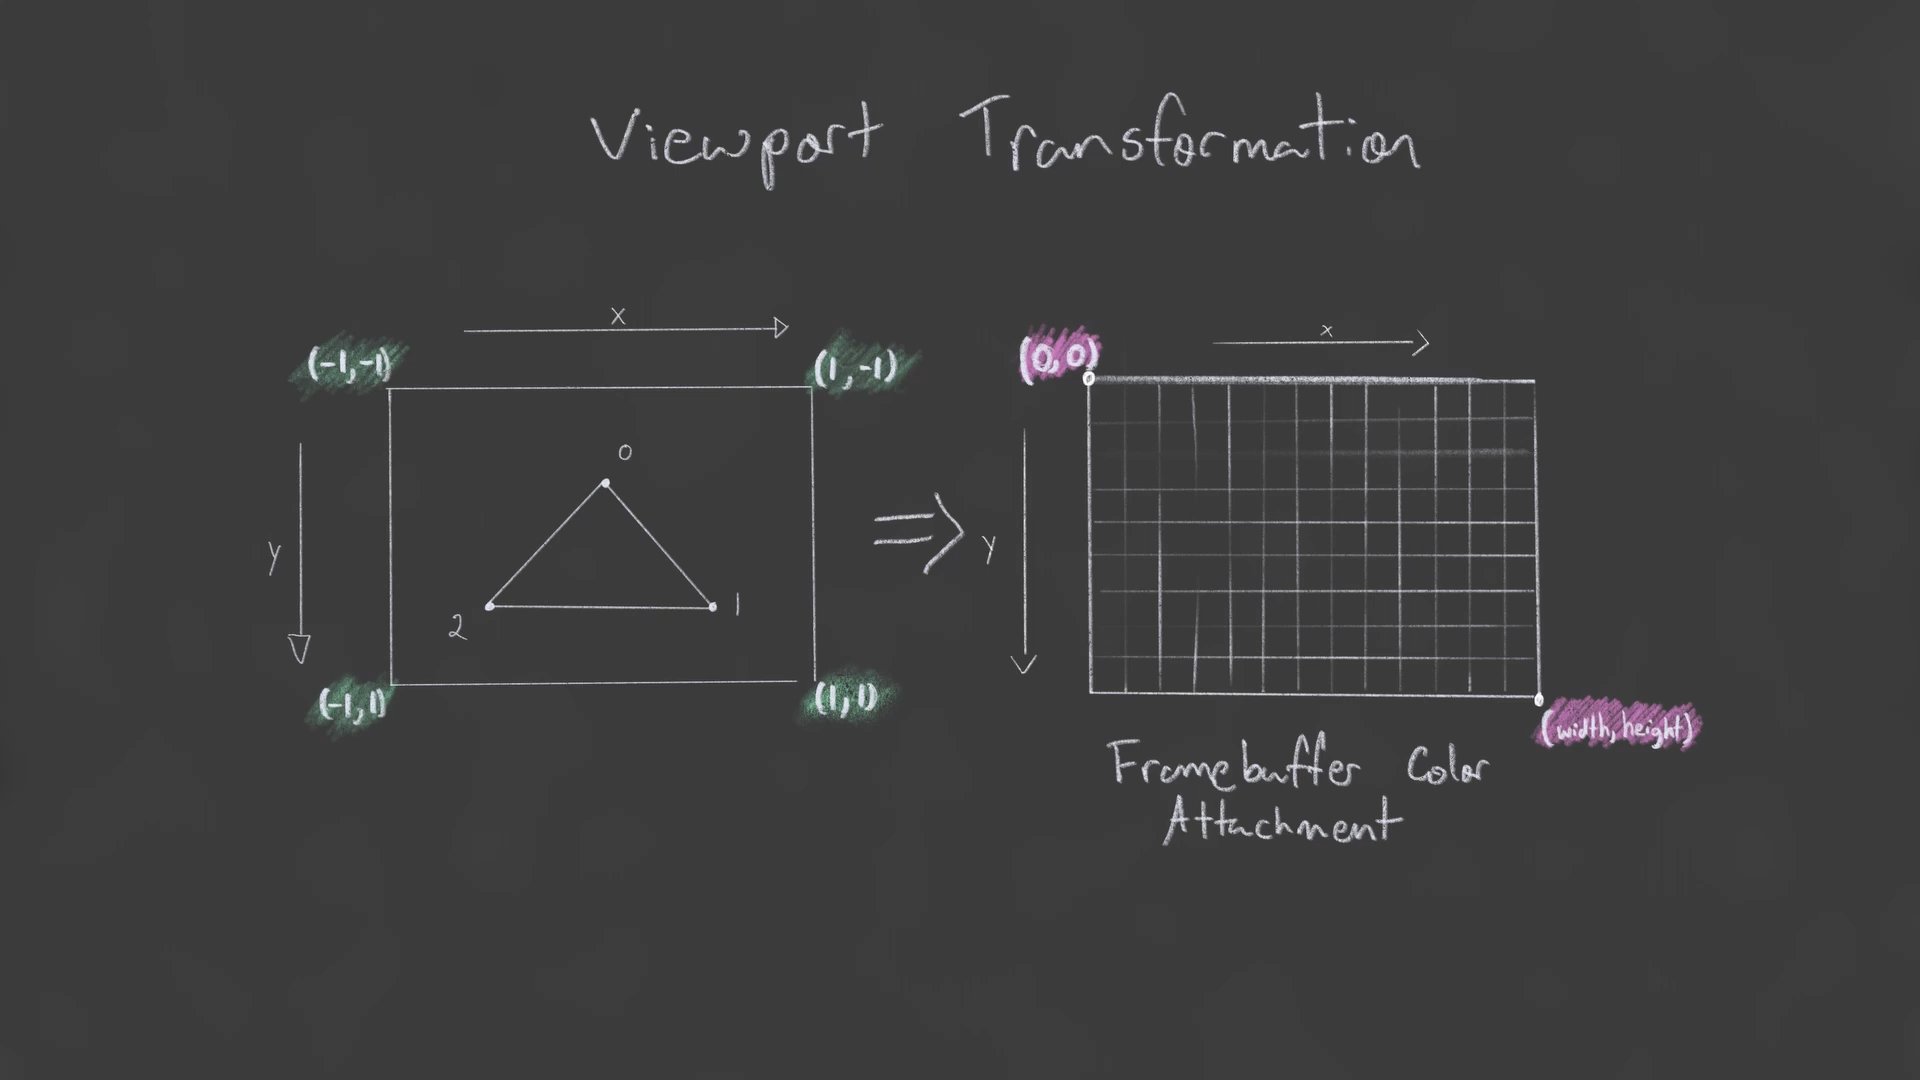 Viewport Transformation
x
(-1,-1)
(1,-1)
y
0
2
1
(-1,1)
(1,1)
=>
x
(0,0)
y
(width,height)
Framebuffer Color
Attachment